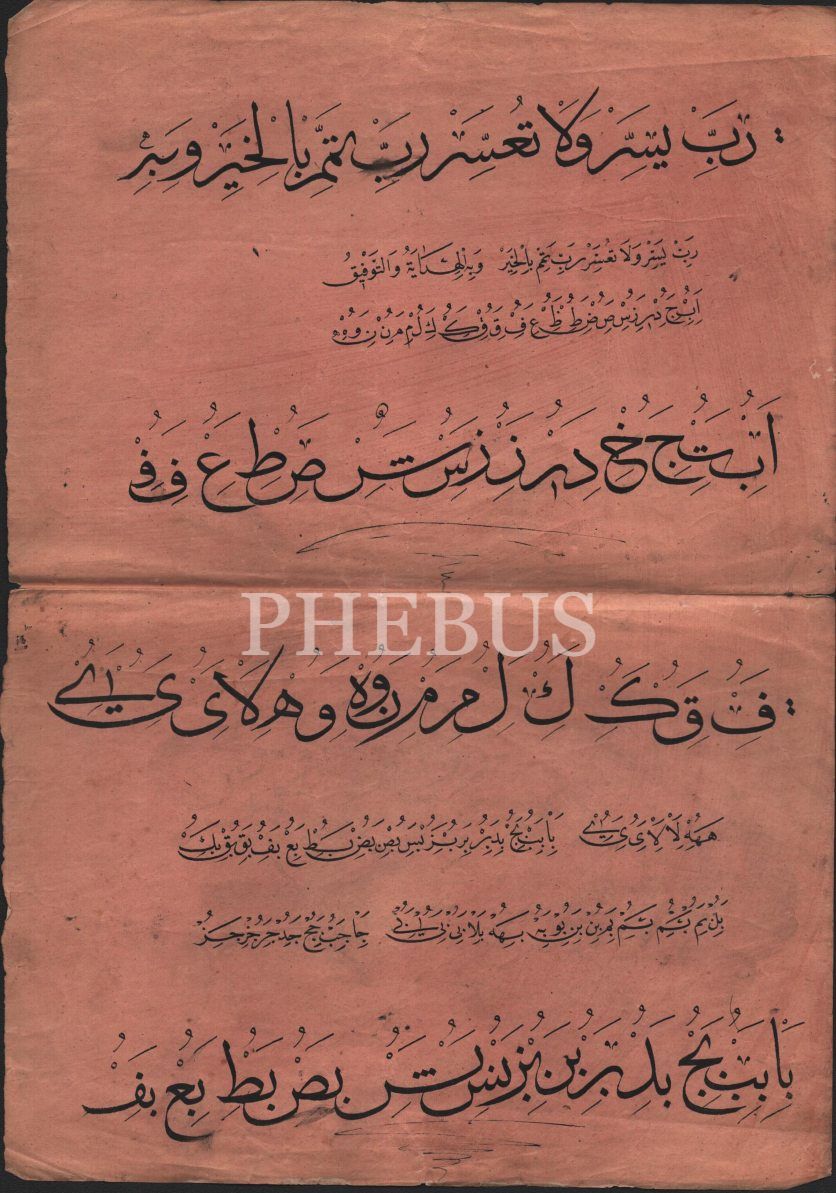 رب يسر ولا تعسر رب تمم بالخير وبه
رب يسر ولا تعسر رب تمم بالخير وبه الهداية والتوفيق
ا ب ج د ر ز س ص ض ط ظ ع ف ق ق ك ك ل م م ن ن و ه
ا ب ت ج خ د ر ز ز س ش ص ط ع ف ف
PHEBUS
ف ق ك ك ل م م ن و ه و ه لا ى ى ے
ههه لا لا ى ى ے با بب بج بد بر بر بز بس بص بض بط بع بف بق بق بك
بل بم بن بو به بهه بلا بى بى بے جا جب جج جد جر جز
با بب بج بد بر بن بز بس بش بص بط بع بف